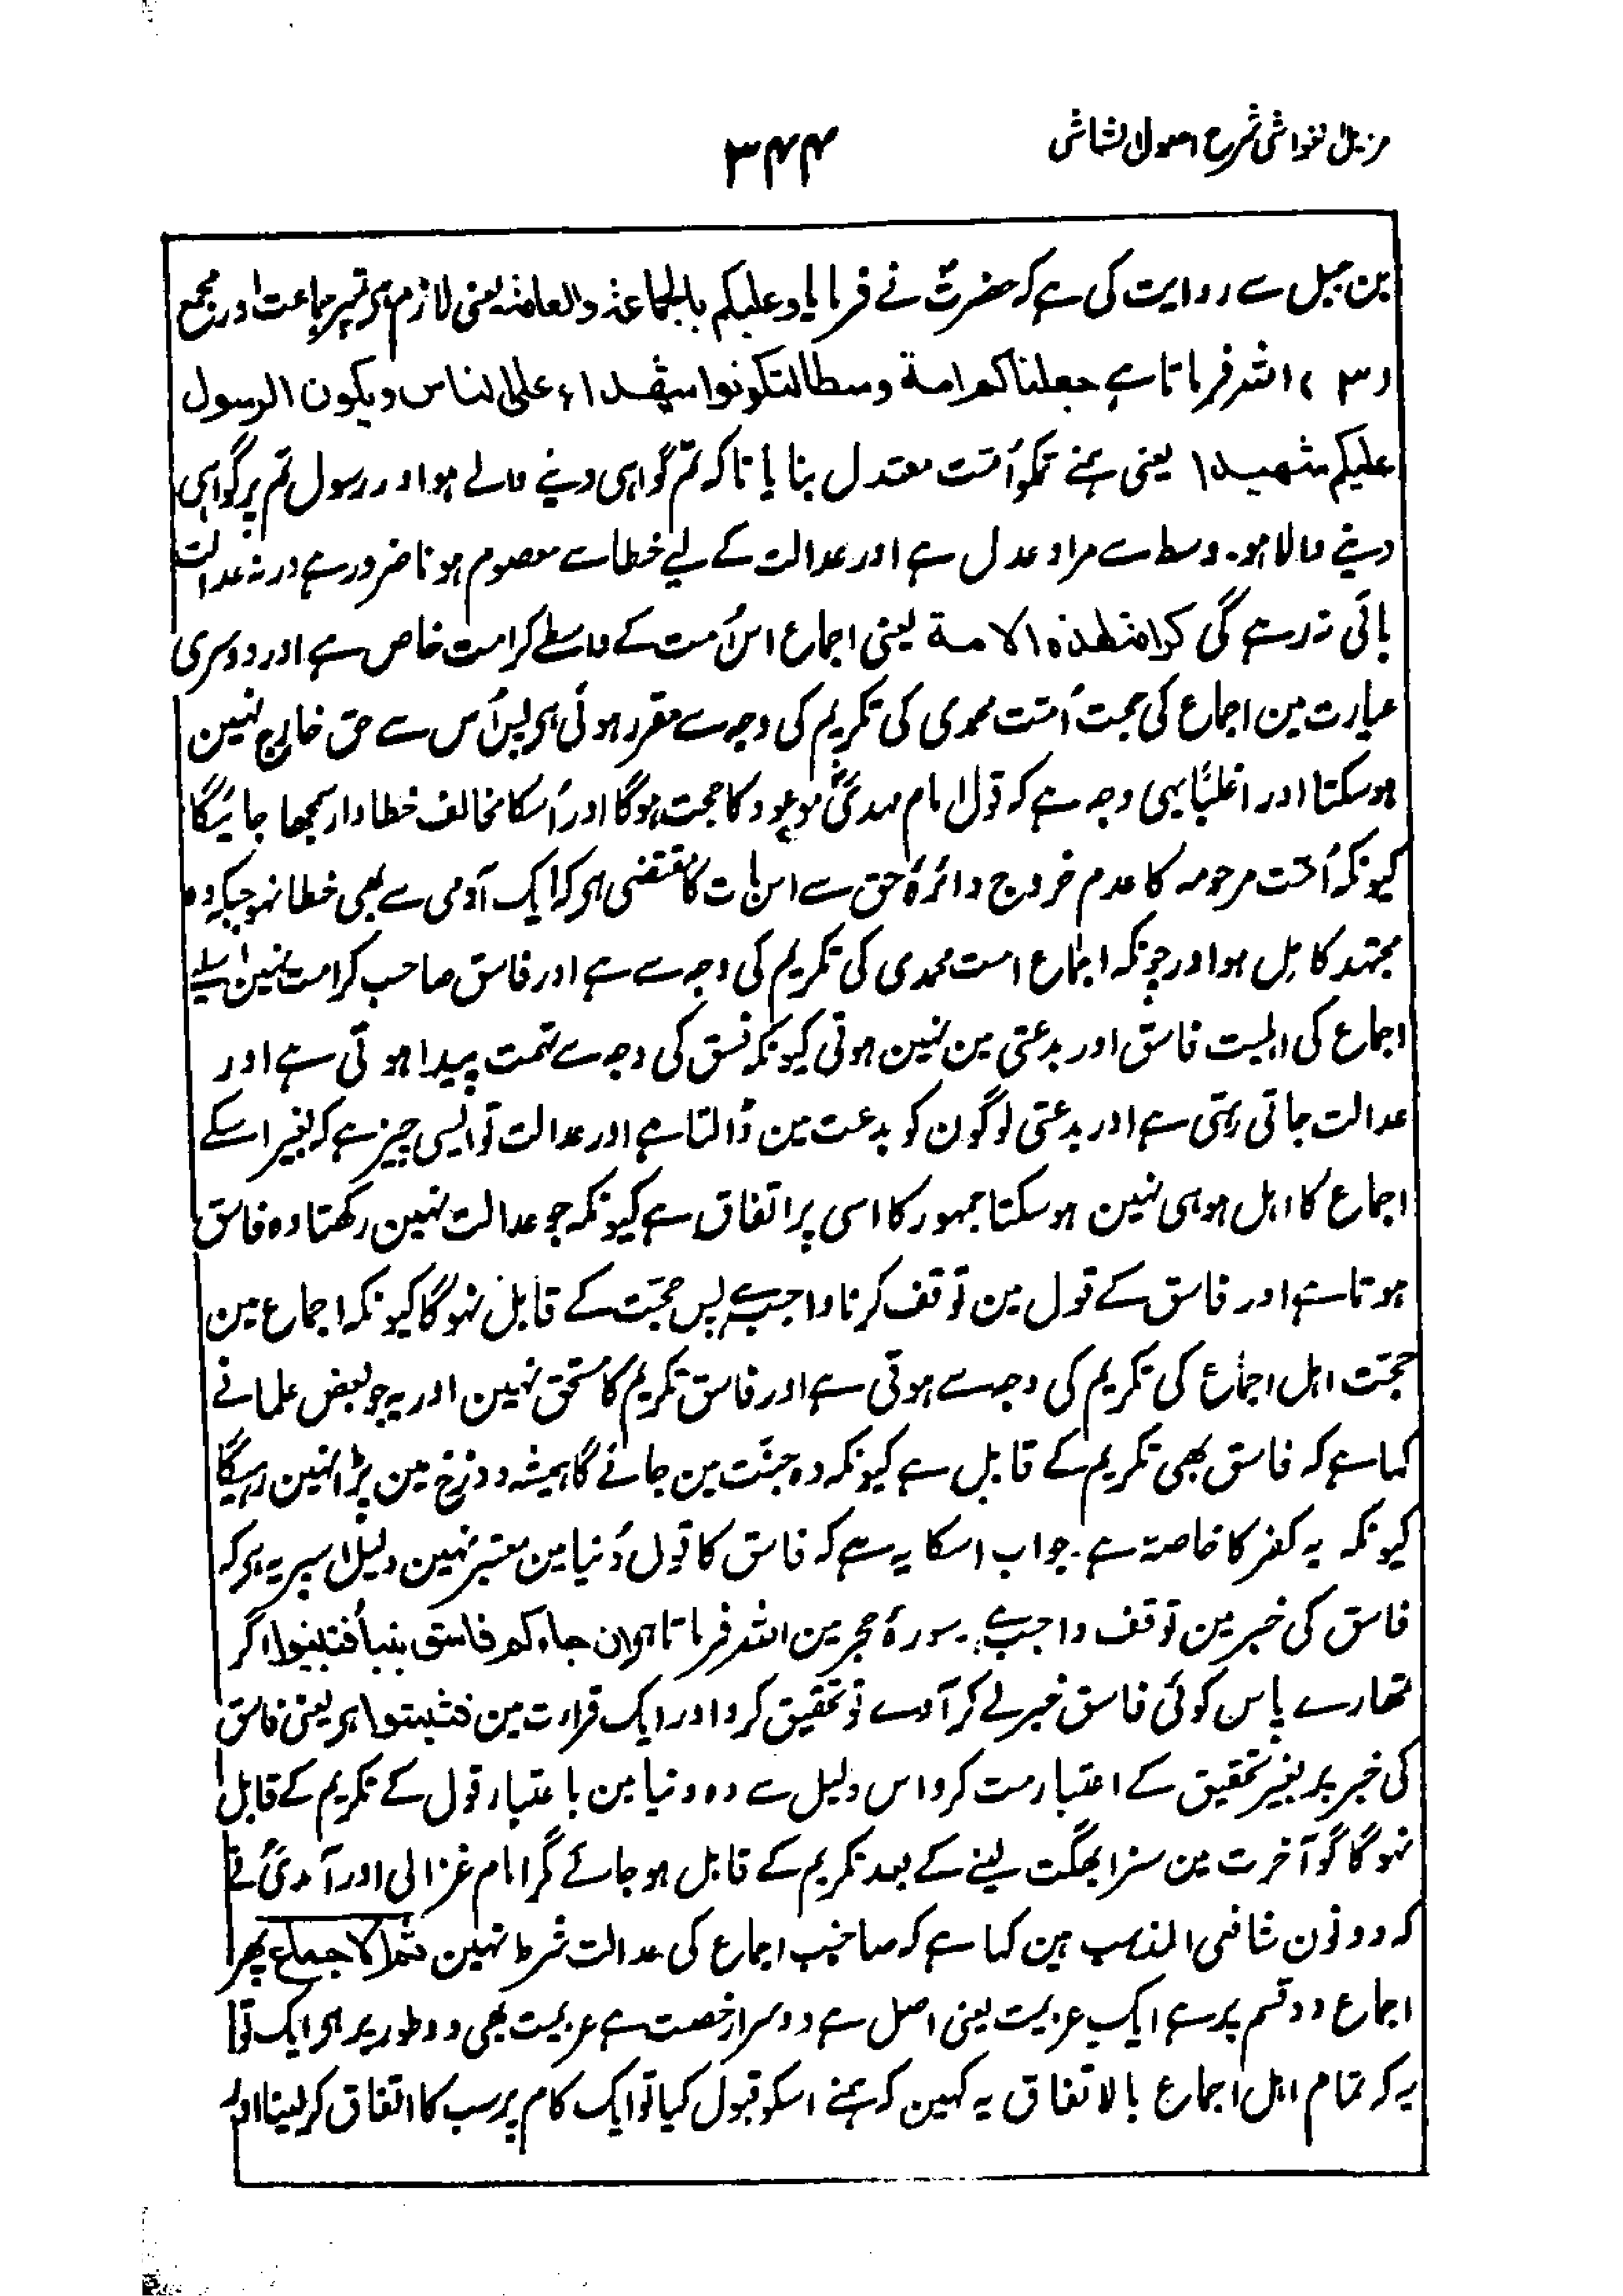 مزیل الغواشی شرح اصول الشاشی
۳۴۴
بن جبل سے روایت کی ہے کہ حضرتؐ نے فرمایا وعلیکم بالجماعۃ والعامۃ یعنی لازم ہو تمپر جماعت اور مجمع
(۳) اللہ فرماتا ہے جعلناکم امة وسطا لتکونوا شھداء علی الناس ویکون الرسول
علیکم شھیدا یعنی ہمنے تمکو اُمّت معتدل بنایا تاکہ تم گواہی دینے والے ہو اور رسول تم پر گواہی
دینے والا ہو۔ وسط سے مراد عدل ہے اور عدالت کے لیے خطا سے معصوم ہونا ضرور ہے ورنہ عدالت
باقی نہ رہے گی کرامة لهذه الامة یعنی اجماع اس اُمت کے واسطے کرامت خاص ہے اور دوسری
عبارت مین اجماع کی حجت اُمّت محمدی کی تکریم کی وجہ سے مقرر ہوئی ہو پس اُس سے حق خارج نہین
ہو سکتا اور اغلبًا یہی وجہ ہے کہ قول امام مہدیؑ موعود کا حجت ہوگا اور اُسکا مخالف خطا دار سمجھا جائیگا
کیونکہ اُمّت مرحومہ کا عدم خروج دائرۂ حق سے اس بات کا مقتضی ہو کہ ایک آدمی سے بھی خطا نہو جبکہ وہ
مجتہد کامل ہو اور چونکہ اجماع امت محمدی کی تکریم کی وجہ سے ہے اور فاسق صاحب کرامت نہین اسلیے
اجماع کی اہلیت فاسق اور بدعتی مین نہین ہوتی کیونکہ فسق کی وجہ سے تہمت پیدا ہوتی ہے اور
عدالت جاتی رہتی ہے اور بدعتی لوگون کو بدعت مین ڈالتا ہے اور عدالت تو ایسی چیز ہے کہ بغیر اسکے
اجماع کا اہل ہو ہی نہین ہو سکتا جمہور کا اسی پر اتفاق ہے کیونکہ جو عدالت نہین رکھتا وہ فاسق
ہوتا ہے اور فاسق کے قول مین توقف کرنا واجب ہے پس حجّت کے قابل نہوگا کیونکہ اجماع مین
حجّت اہل اجماع کی تکریم کی وجہ سے ہوتی ہے اور فاسق تکریم کا مستحق نہین اور یہ جو بعض علما نے
کہا ہے کہ فاسق بھی تکریم کے قابل ہے کیونکہ وہ جنّت مین جائے گا ہمیشہ دوزخ مین پڑا نہین رہیگا
کیونکہ یہ کفر کا خاصہ ہے۔ جواب اسکا یہ ہے کہ فاسق کا قول دُنیا مین معتبر نہین دلیل اسپر یہ ہو کہ
فاسق کی خبر مین توقف واجب ہے۔ سورۂ حجر مین اللہ فرماتا ہو ان جاءکم فاسق بنبأ فتبینوا اگر
تمہارے پاس کوئی فاسق خبر لے کر آوے تو تحقیق کرو اور ایک قراءت مین فتثبتوا ہو یعنی فاسق
کی خبر پر بغیر تحقیق کے اعتبار مت کرو اس دلیل سے وہ دنیا مین باعتبار قول کے تکریم کے قابل
نہوگا گو آخرت مین سزا بھگت لینے کے بعد تکریم کے قابل ہو جائے گر امام غزالی اور آمدیؒ نے
کہ دونون شافعی المذہب ہین کہا ہے کہ صاحب اجماع کی عدالت شرط نہین ثم الاجماع پھر
اجماع دو قسم پر ہے ایک عزیمت یعنی اصل ہے دوسرا رخصت ہے عزیمت بھی دو طور پر ہو ایک تو
یہ کہ تمام اہل اجماع بالاتفاق یہ کہین کہ ہمنے اسکو قبول کیا تو ایک کام پر سب کا اتفاق کر لینا اور